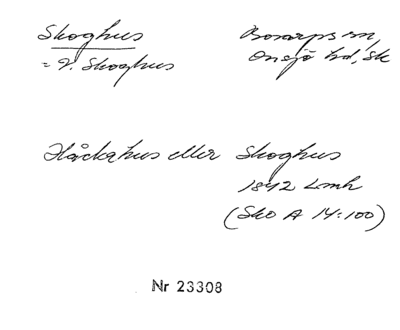 Skoghus
Bosarps sn,
= V. Skoghus
Onsjö hd, Sk
Håckahus eller Skoghus
1842 Lmh
(Sko A 14:100)
Nr 23308